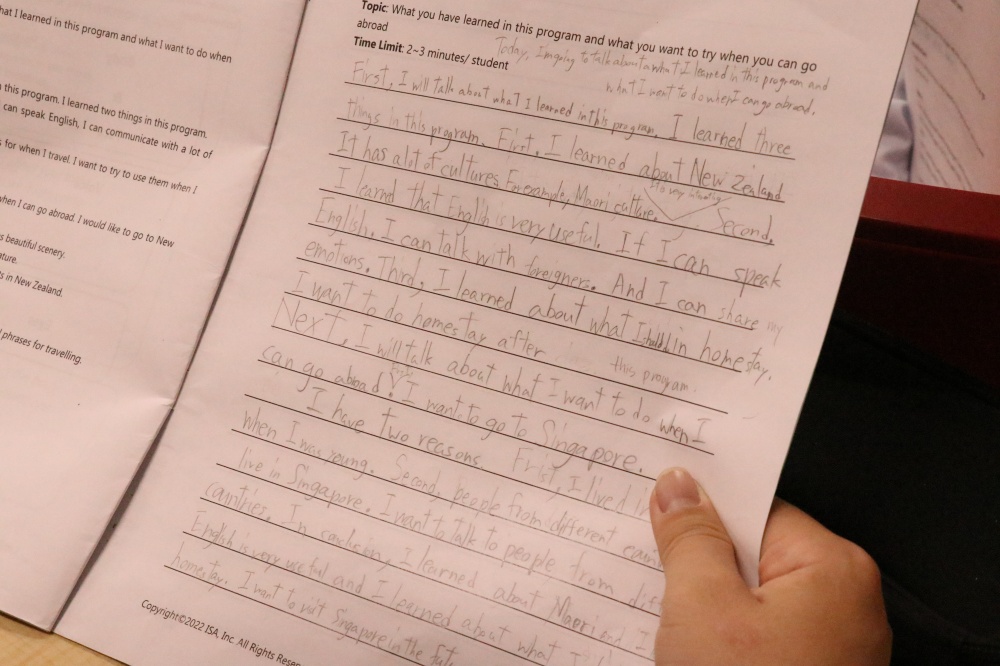 hat I learned in this program and what I want to do when
this program. I learned two things in this program.
can speak English, I can communicate with a lot of
s for when I travel. I want to try to use them when I
when I can go abroad. I would like to go to New
s beautiful scenery.
ature.
s in New Zealand.
phrases for travelling.
Topic: What you have learned in this program and what you want to try when you can go
abroad
Time Limit: 2~3 minutes/ student
Today, I'm going to talk about what I learned in this program and
what I want to do when I can go abroad.
First, I will talk about what I learned in this program. I learned three
things in this program. First, I learned about New Zealand
It has a lot of cultures. For example, Maori culture. It's very interesting Second,
I learned that English is very useful. If I can speak
English. I can talk with foreigners. And I can share my
emotions. Third, I learned about what I should in homestay.
I want to do homestay after this program.
Next, I will talk about what I want to do when I
can go abroad. I want to go to Singapore.
I have two reasons. Frist, I lived i
when I was young. Second, people from different coun
live in Singapore. I want to talk to people from dif
countries. In conclusion, I learned about Maori and I
English is very useful and I learned about what I
homestay. I want to visit Singapore in the
Copyright©2022 ISA, Inc. All Rights Rese